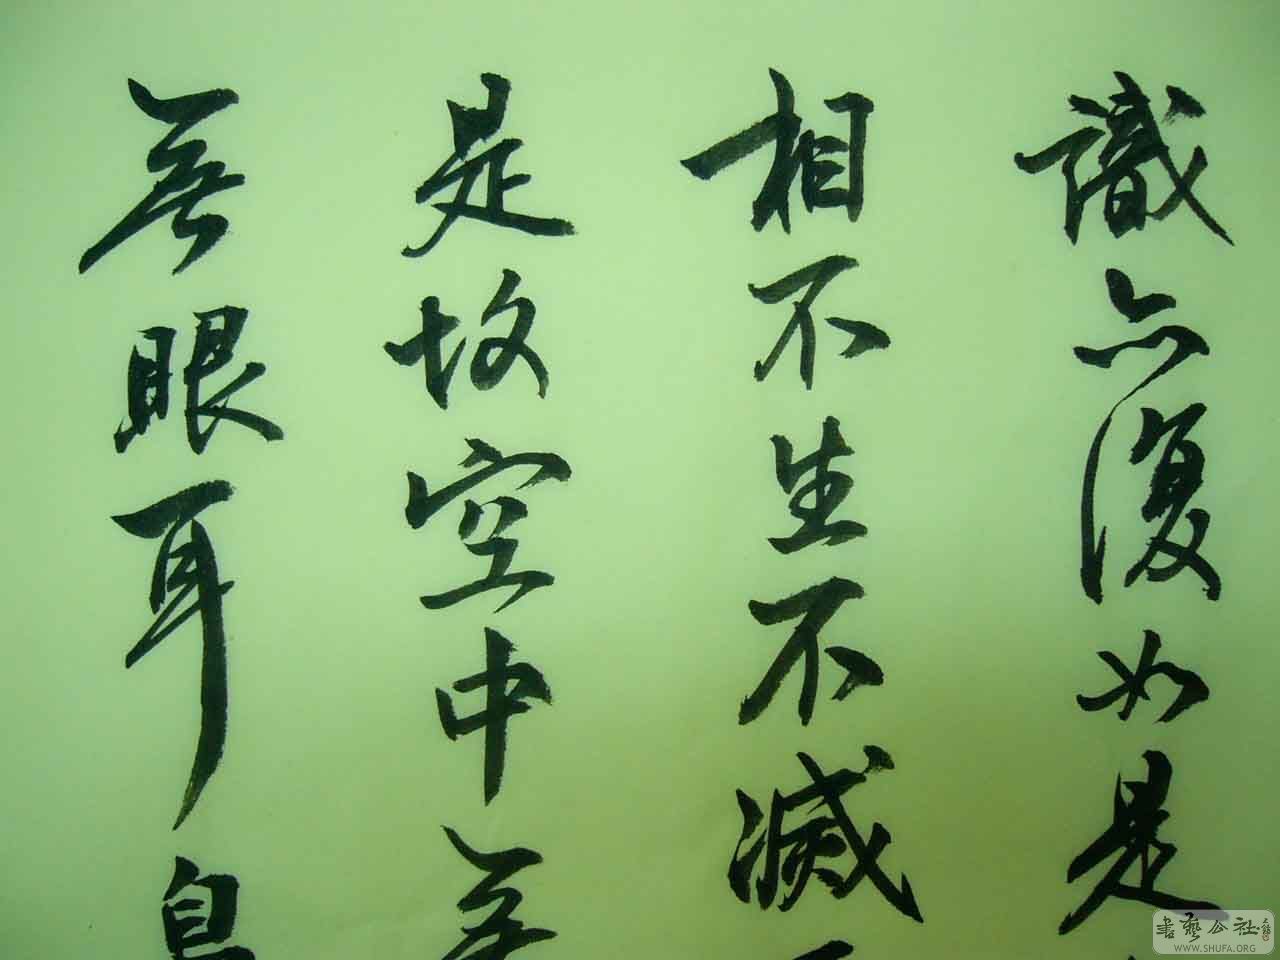 識亦復如是
相不生不滅
是故空中無
無眼耳鼻
書藝公社
WWW.SHUFA.ORG